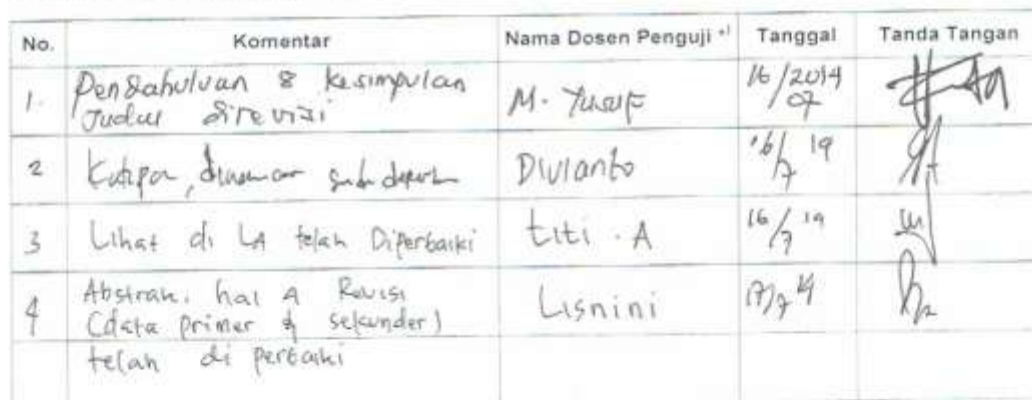 No. Komentar Nama Dosen Penguji *) Tanggal Tanda Tangan
1. Pendahuluan & Kesimpulan
Judul direvisi M. Yusuf 16/07 2014
2 Kutipan, Divianto 16/7 19
3 Lihat di LA telah Diperbaiki titi . A 16/7 19
4 Abstrak. hal 4 Revisi
(data primer & sekunder) Lisnini 17/7 19
telah di perbaiki